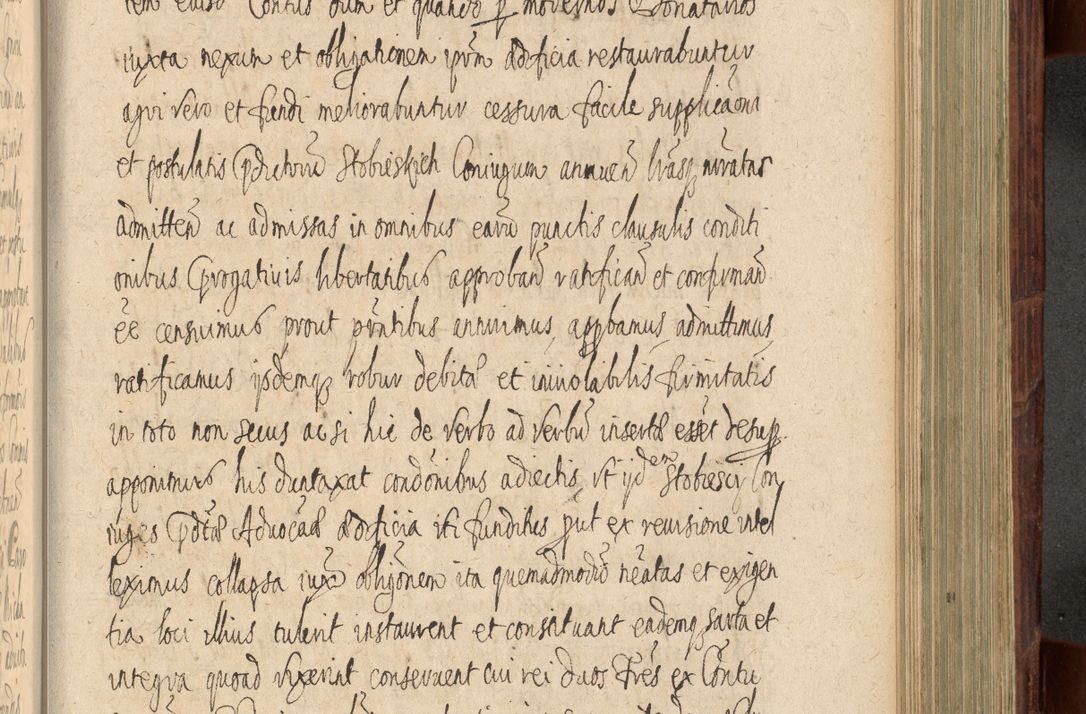 et quando p modernos Donatarios
iuxta nexum et obligationem ipõm ædificia restaurabuntur
agri vero et fundi meliorabuntur cessura facile supplicãoni
et postulatis Prædictorũ Stobieskich Coniugum annuen̄ lrãsq
admitten̄ ac admissas in omnibus earũ punctis clausulis conditi
onibus Prærogativis libertatibus approban̄ ratifican̄ et confirman̄
censuimus prout pñtibus annuimus, appbamus, admittimus,
ratificamus ijsdemq robur debitæ et inviolabilis firmitatis
in toto non secus ac si hic de verbo ad verbũ insertæ essẽt desup
apponimus his duntaxat condõnibus adiectis, Vt ijdem Stobiescy Con
iuges ædificia iti funditus put ex revisione intel
leximus collapsa iuxã obligõnem ita quemadmodũ nẽatas et exigen
tia loci illius tulerit instaurent et constituant eademq sarta et
integra quoad vixerint conservent cui rei duos Frẽs ex Cõntu